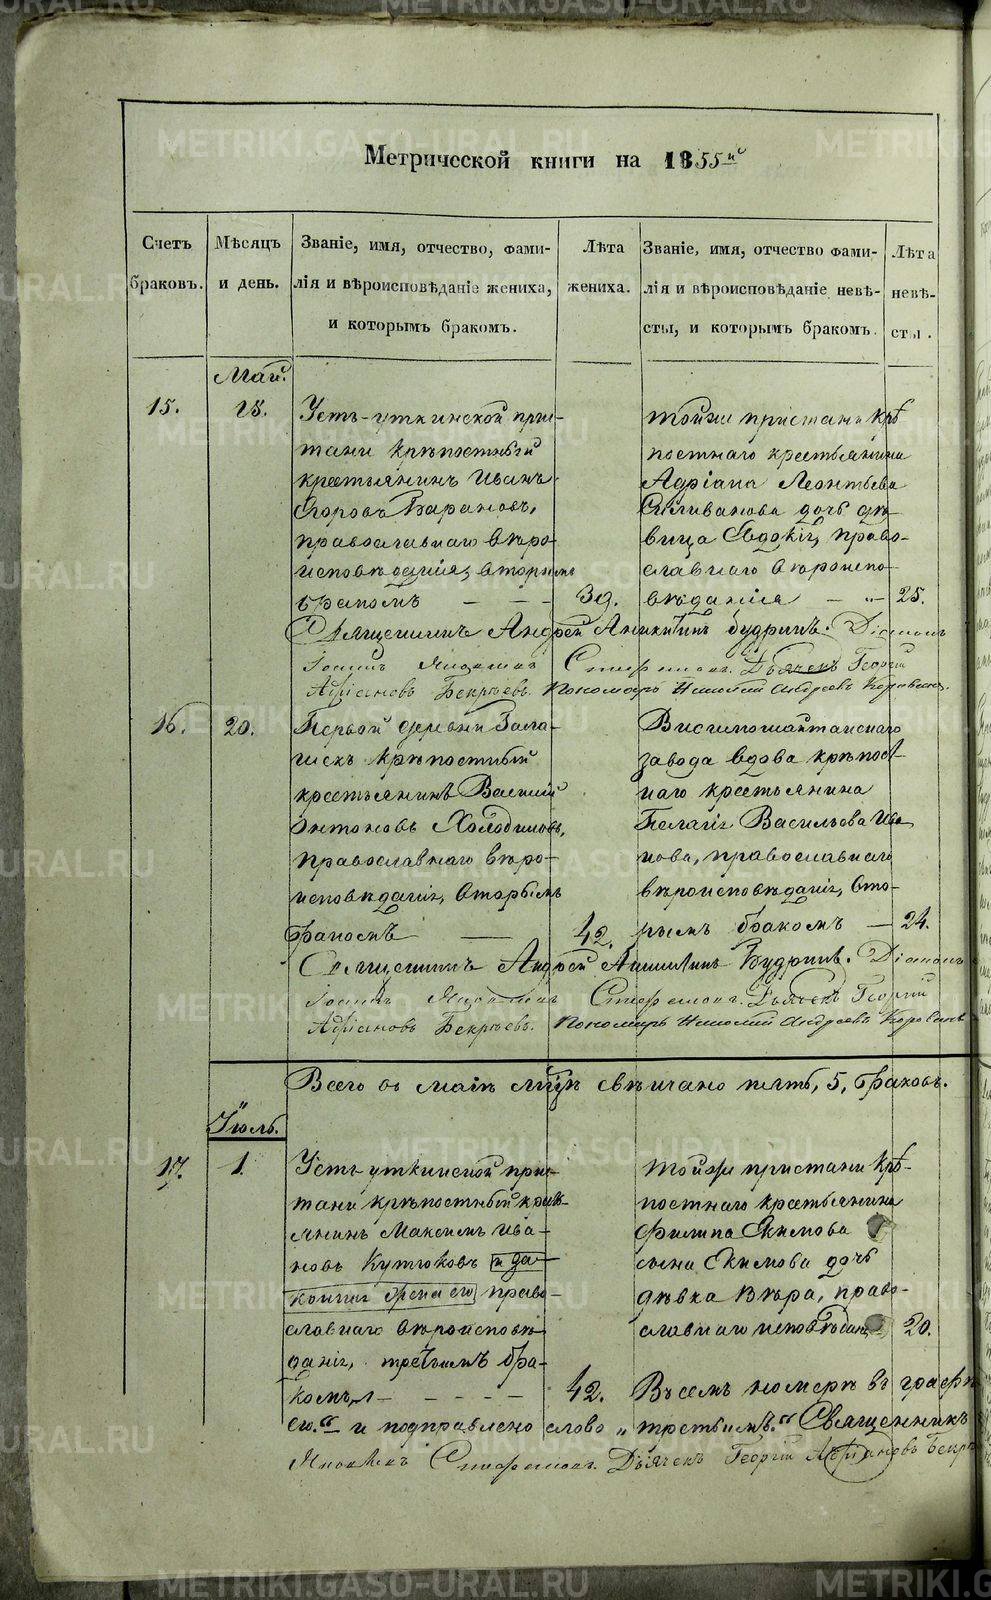 Метрической книги на 1855й
Счетъ браковъ.
Мѣсяцъ и день.
Званіе, имя, отчество, фами-
лія и вѣроисповѣданіе жениха,
и которымъ бракомъ.
Лѣта жениха.
Званіе, имя, отчество фами-
лія и вѣроисповѣданіе невѣ-
сты, и которымъ бракомъ.
Лѣта невѣ-
сты.
Май.
15.
18.
Усть-уткинской при-
тани крѣпостный
крестьянинъ Иванъ
Егоровъ Барановъ,
православнаго вѣро-
исповѣданія, вторымъ
бракомъ
39.
тойже пристани крѣ
постнаго крестьянина
Адріана Леонтьева
Селиванова дочь дѣ-
вица Евдокія, право-
славнаго вѣроиспо-
вѣданія
25.
Священникъ Андрей Аникитинъ Будринъ. Діаконъ
Іоаннъ Дьячекъ Георгій
Адріановъ Бекрѣевъ. Пономарь Николай Андреевъ
16.
20.
Первой деревни
крѣпостный
крестьянинъ Василій
Антоновъ
православнаго вѣро-
исповѣданія, вторымъ
бракомъ
42.
Висимошайтанскаго
завода вдова крѣпост-
наго крестьянина
Пелагія Васильева Ива
нова, православнаго
вѣроисповѣданія, вто-
рымъ бракомъ
24.
Священникъ Андрей Аникитинъ Будринъ. Діаконъ
Іоаннъ Дьячекъ Георгій
Адріановъ Бекрѣевъ. Пономарь Николай Андреевъ
Всего въ маіѣ мцѣ свѣнчано пять, 5, браковъ.
Іюль.
17.
1.
Усть-уткинской при-
тани крѣпостный крест
янинъ Максимъ Ива-
новъ Кутюковъ
право-
славнаго вѣроисповѣ-
данія, третьимъ бра-
комъ
42.
тойже пристани крѣ-
постнаго крестьянина
Филипа Екимова
сына Екимова дочь
дѣвка Вѣра, право-
славнаго исповѣдан
20.
Въ семъ номерѣ въ графѣ
его." и подправлено слово „третьимъ." Священникъ
Дьячекъ Георгій Адріановъ Бекрѣ
METRIKI.GASO-URAL.RU